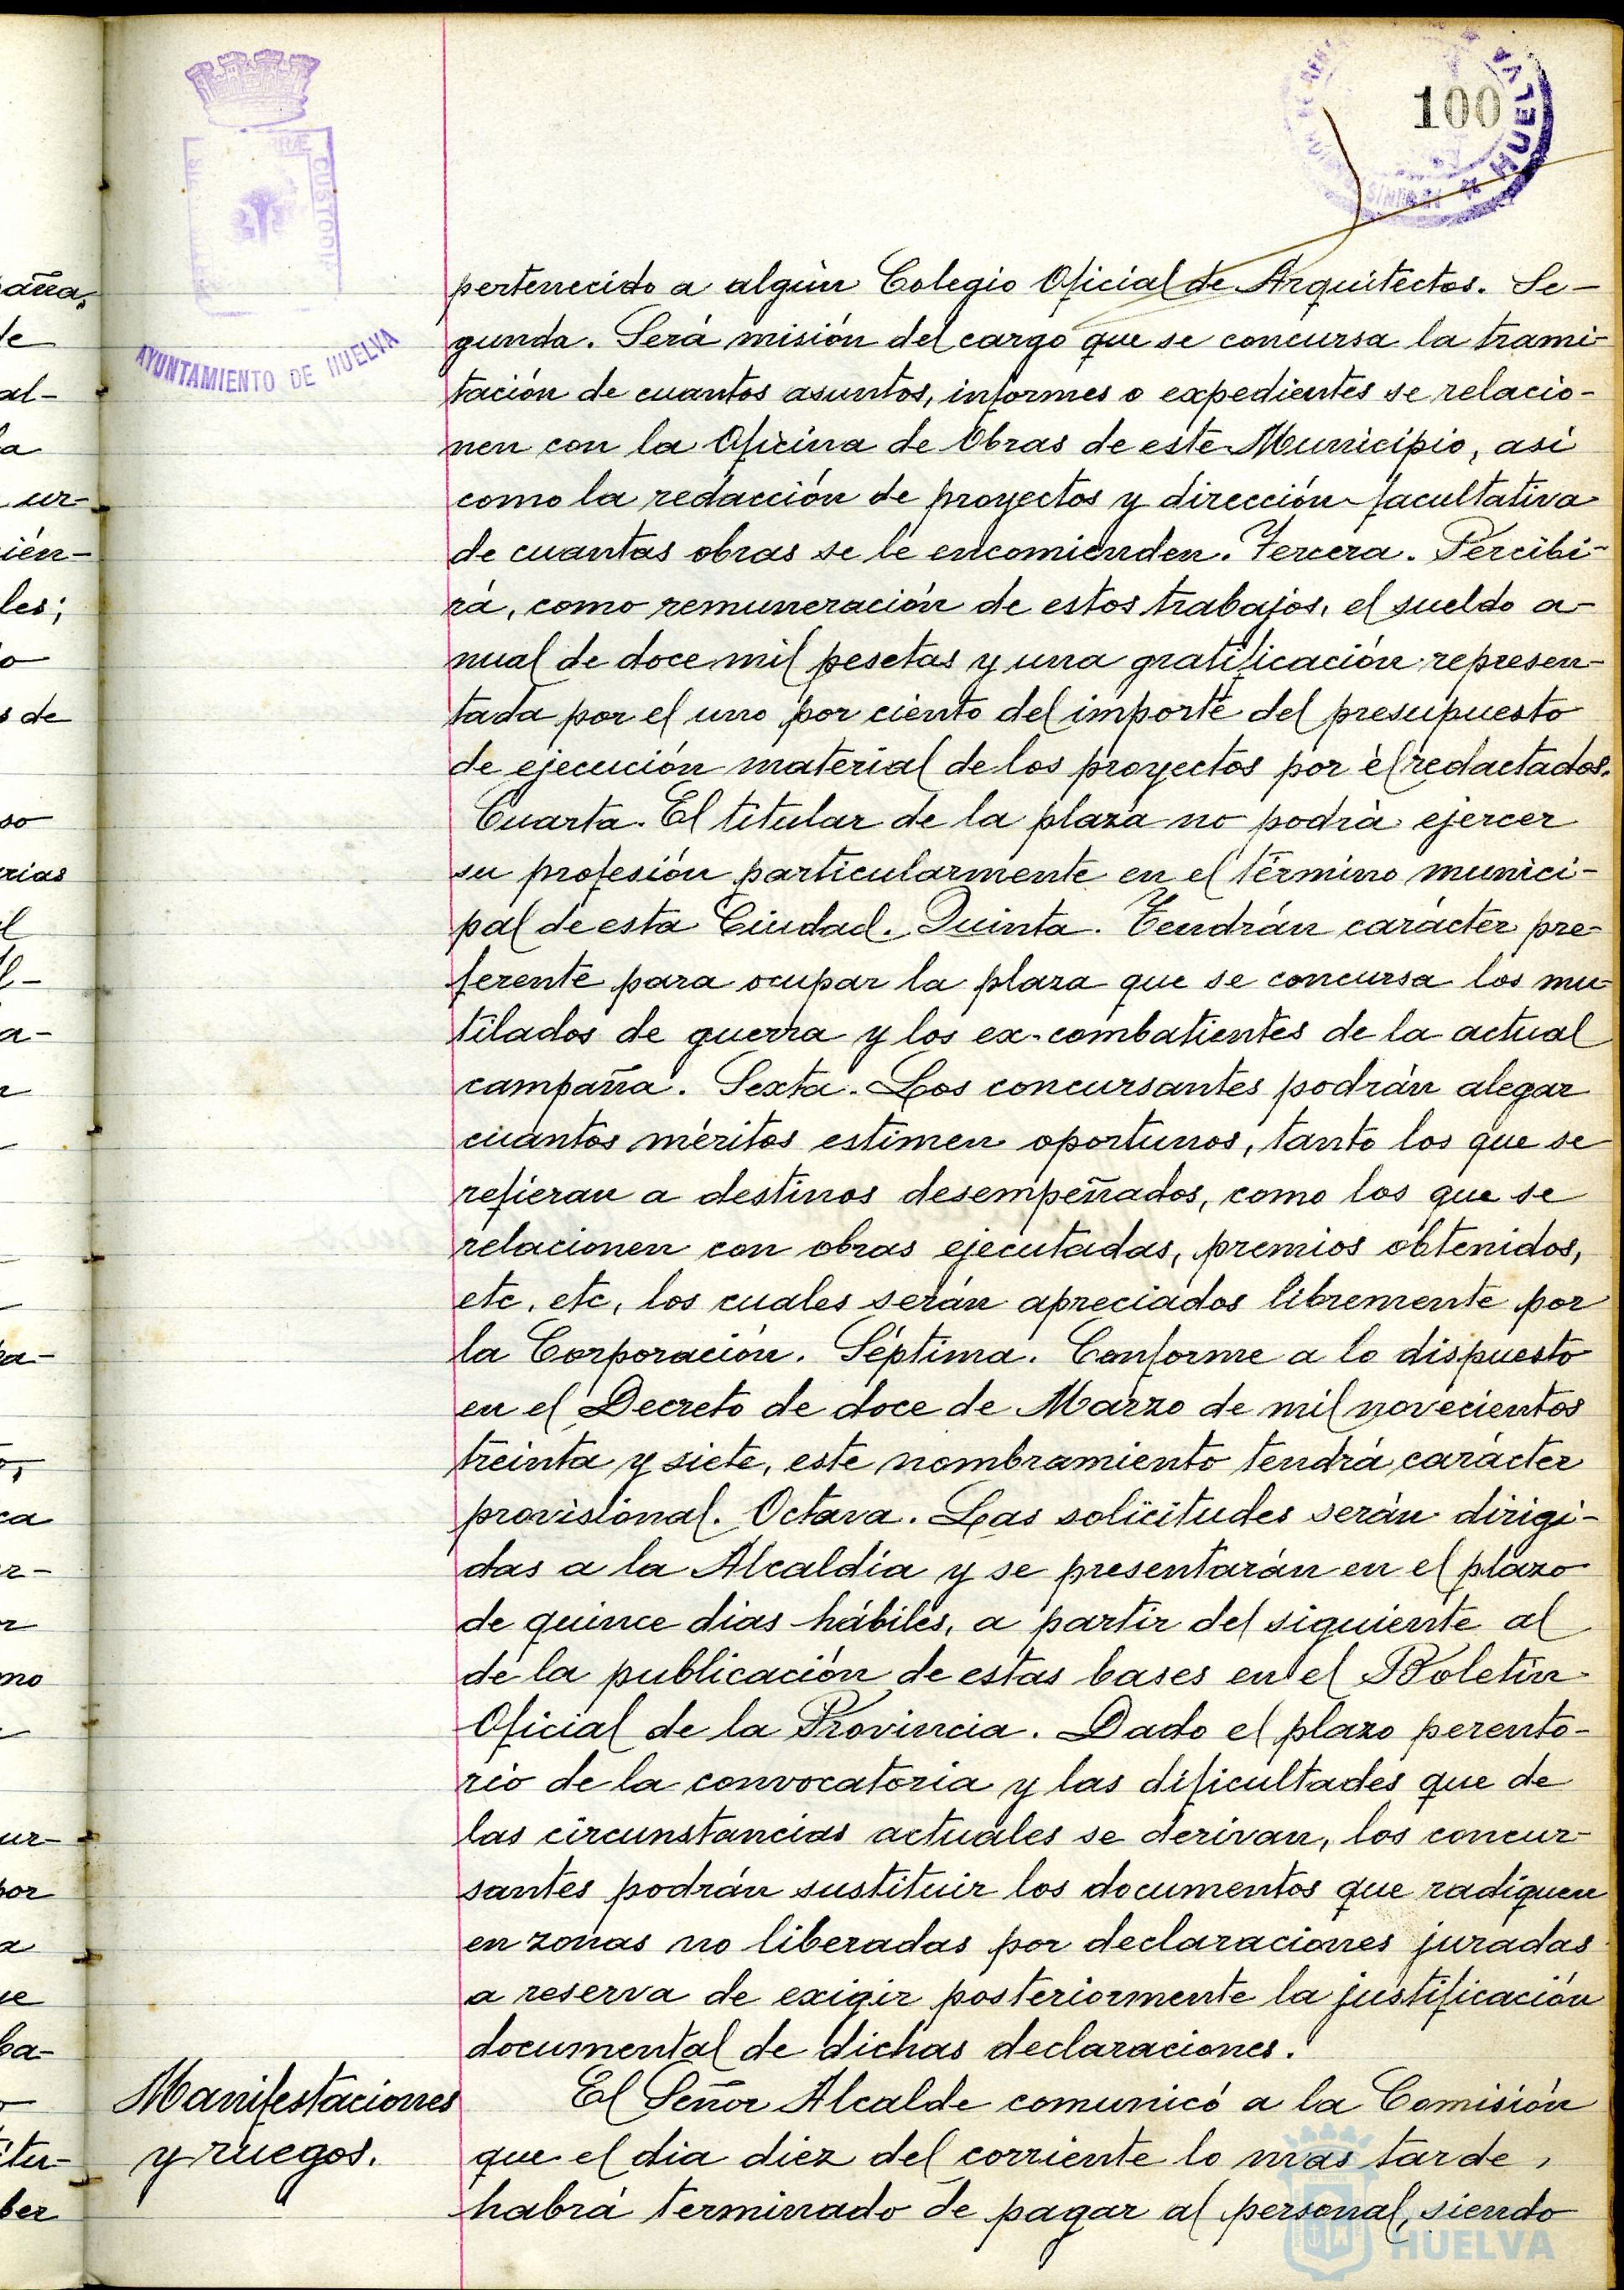 100
HUELVA
CUSTODIA
AYUNTAMIENTO DE HUELVA
pertenecido a algún Colegio Oficial de Arquitectos. Se-
gunda. Será misión del cargo que se concursa la trami-
tación de cuantos asuntos, informes o expedientes se relacio-
nen con la Oficina de Obras de este Municipio, así
como la redacción de proyectos y dirección facultativa
de cuantas obras se le encomienden. Tercera. Percibi-
rá, como remuneración de estos trabajos, el sueldo a-
nual de doce mil pesetas y una gratificación represen-
tada por el uno por ciento del importe del presupuesto
de ejecución material de los proyectos por él redactados.
Cuarta. El titular de la plaza no podrá ejercer
su profesión particularmente en el término munici-
pal de esta Ciudad. Quinta. Tendrán carácter pre-
ferente para ocupar la plaza que se concursa los mu-
tilados de guerra y los ex-combatientes de la actual
campaña. Sexta. Los concursantes podrán alegar
cuantos méritos estimen oportunos, tanto los que se
refieran a destinos desempeñados, como los que se
relacionen con obras ejecutadas, premios obtenidos,
etc, etc, los cuales serán apreciados libremente por
la Corporación. Séptima. Conforme a lo dispuesto
en el Decreto de doce de Marzo de mil novecientos
treinta y siete, este nombramiento tendrá carácter
provisional. Octava. Las solicitudes serán dirigi-
das a la Alcaldía y se presentarán en el plazo
de quince dias hábiles, a partir del siguiente al
de la publicación de estas bases en el Boletín
Oficial de la Provincia. Dado el plazo perento-
rio de la convocatoria y las dificultades que de
las circunstancias actuales se derivan, los concur-
santes podrán sustituir los documentos que radiquen
en zonas no liberadas por declaraciones juradas
a reserva de exigir posteriormente la justificación
documental de dichas declaraciones.
Manifestaciones
y ruegos.
El Señor Alcalde comunicó a la Comisión
que el dia diez del corriente lo mas tarde,
habrá terminado de pagar al personal, siendo
HUELVA